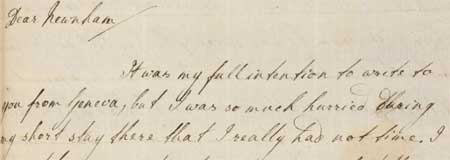 Dear Newnham/
It was my full intention to write to
you from Geneva, but I was so much hurried During
my short stay there that I really had not time. I